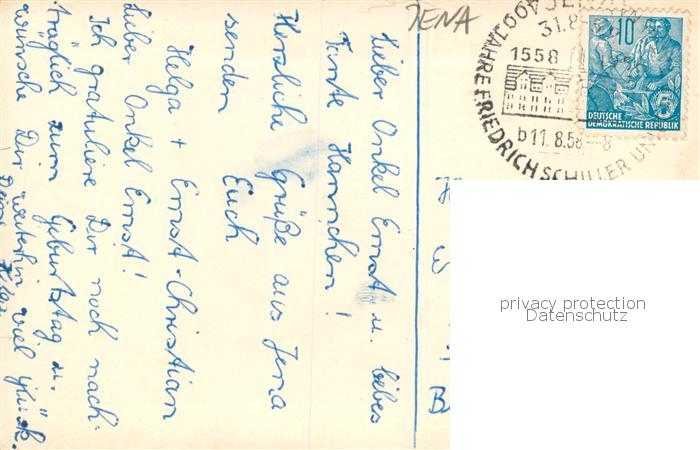 JENA
Lieber Onkel Ernst u. liebes
Tante Hannchen!
Herzliche Grüße aus Jena
senden Euch
Helga + Ernst-Christian
Lieber Onkel Ernst!
Ich gratuliere Dir noch nach-
träglich zum Geburtstag u.
wünsche Dir weiterhin viel Glück.
Deine Helga
400 JAHRE FRIEDRICH SCHILLER UNI
1558
b11.8.58–8
10
5
DEUTSCHE
DEMOKRATISCHE REPUBLIK
B
privacy protection
Datenschutz